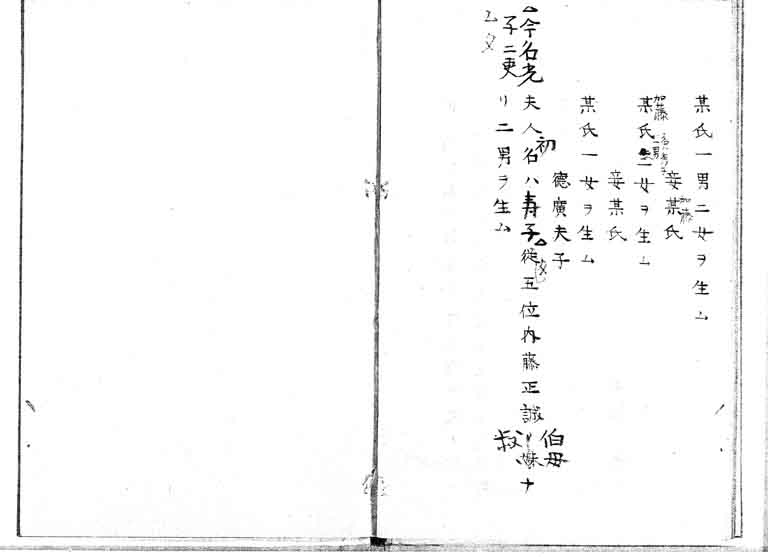 某氏一男二女ヲ生ム
加藤
妾某氏
加藤
某氏一女ヲ生ム
二男
妾某氏
某氏一女ヲ生ム
德廣夫子
初
夫人名ハ壽子従五位内藤正誠妹ナ
伯母
叔
リ二男ヲ生ム
今名光
子ニ更
ム